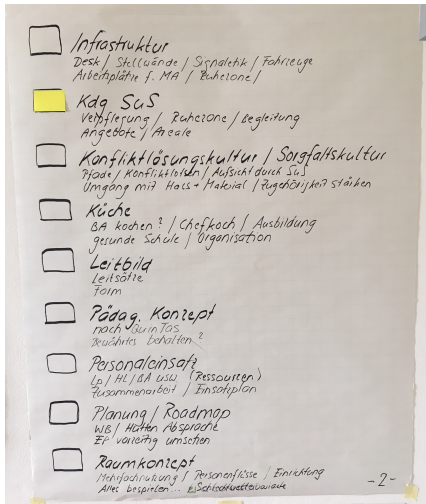 Infrastruktur
Desk / Stellwände / Signaletik / Fahrzeuge
Arbeitsplätze f. MA / Ruhezone /
Kdg SuS
Verpflegung / Ruhezone / Begleitung
Angebote / Areale
Konfliktlösungskultur / Sorgfaltskultur
Pfade / Konfliktlotsen / Aufsicht durch SuS
Umgang mit Haus + Material / Zugehörigkeit stärken
Küche
BA kochen? / Chefkoch / Ausbildung
gesunde Schule / Organisation
Leitbild
Leitsätze
Form
Pädag. Konzept
nach QuinTas
Bewährtes behalten?
Personaleinsatz
Lp / HL / BA usw. (Ressourcen)
Zusammenarbeit / Einsatzplan
Planung / Roadmap
WB / Hütten Absprache
EP vorzeitig umsehen
Raumkonzept
Mehrfachnutzung / Personenflüsse / Einrichtung
Alles bespielen... Schlechtwettervariante
-2-